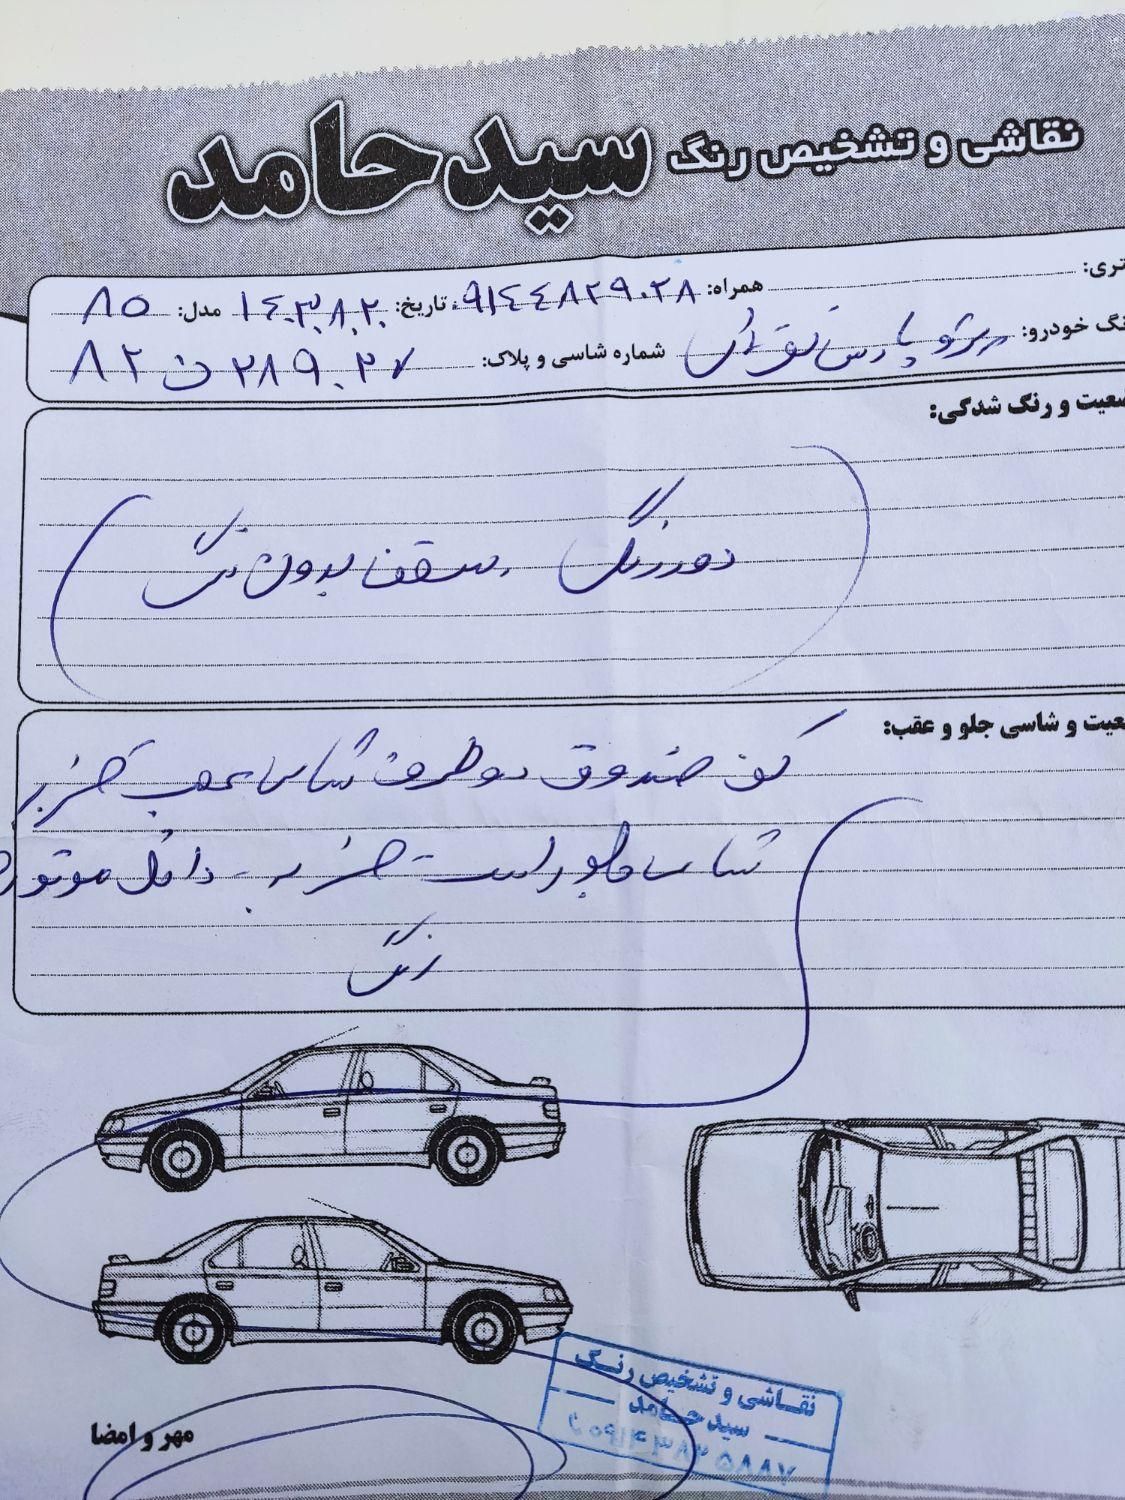 نقاشی و تشخیص رنگ سید حامد
تری: همراه: ۹۱۴۴۸۲۹۰۲۸ تاریخ: ۱۴۰۳.۸.۲۰ مدل: ۸۵
نگ خودرو: پژو پارس نقره‌ای شماره شاسی و پلاک: ۸۲ ن ۲۸۹.۲۷
ضعیت و رنگ شدگی:
دور رنگ . سقف بدون رنگ
عیت و شاسی جلو و عقب:
کف صندوق دو طرف شاسی عقب ضربه
شاسی جلو راست ضربه - داخل موتور
رنگ
نقاشی و تشخیص رنگ
سید حامد
مهر و امضا